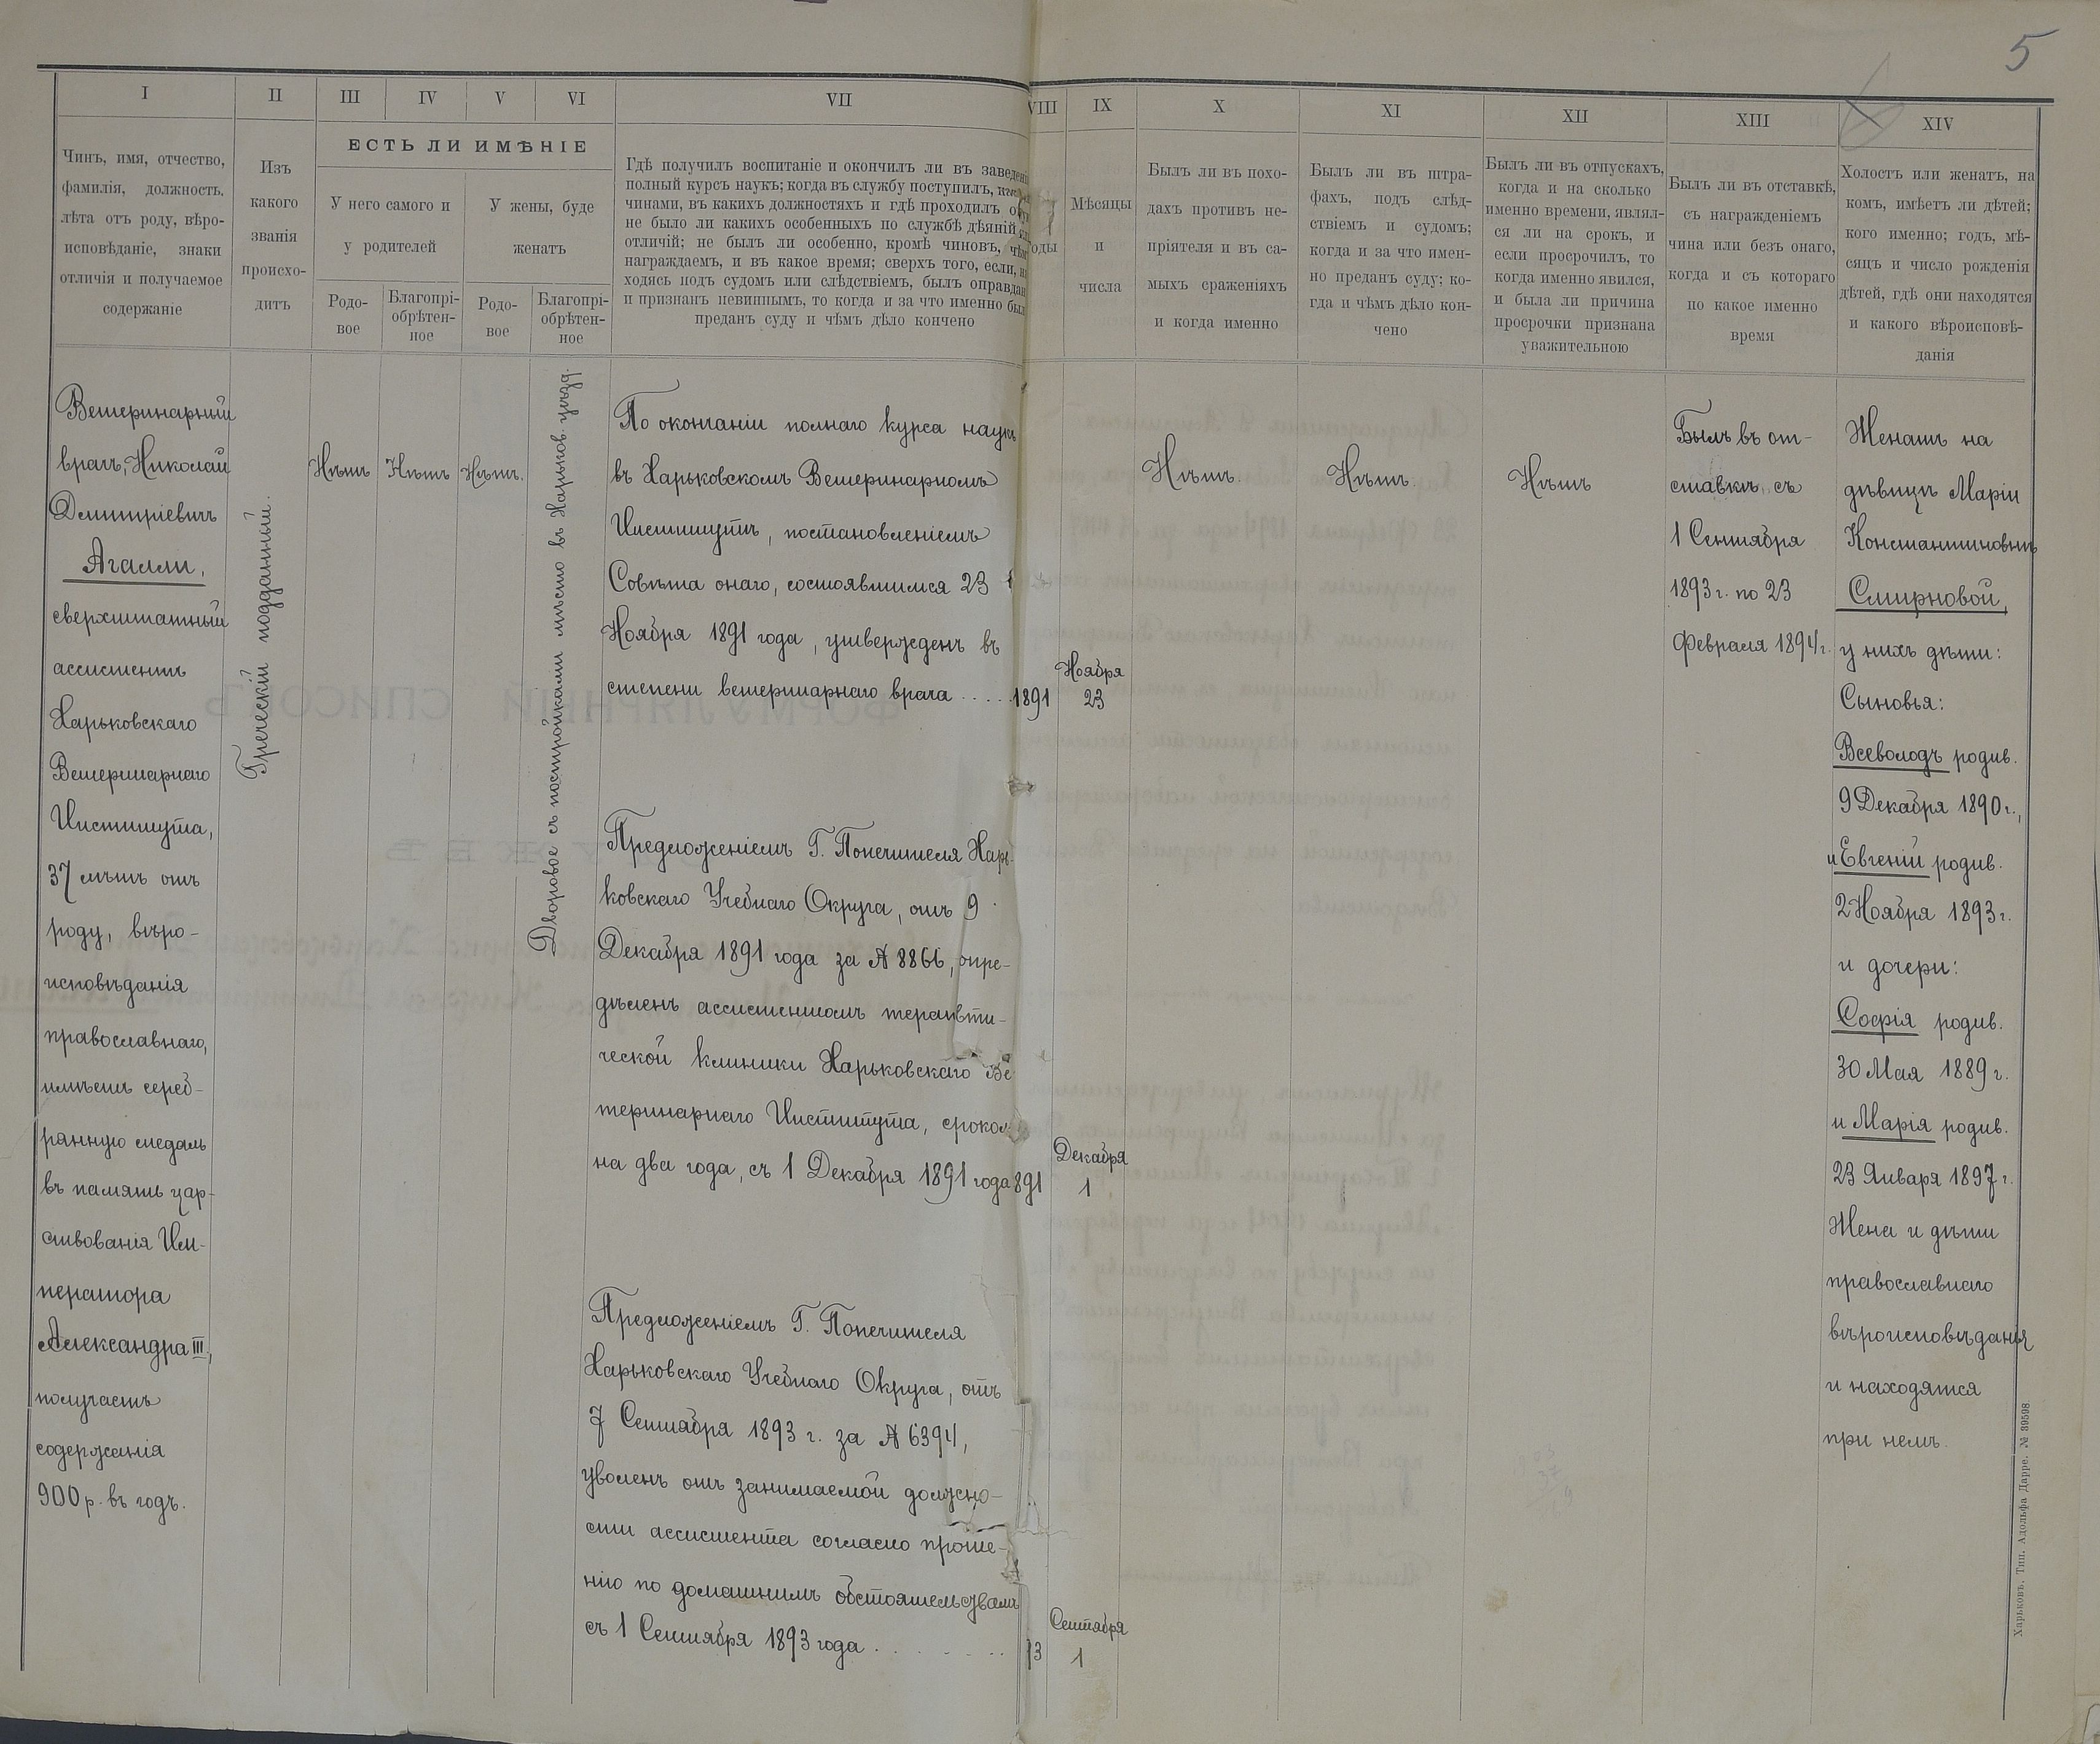 5
I
II
III
IV
V
VI
VII
VIII
IX
X
XI
XII
XIII
XIV
Чинъ, имя, отчество,
фамилія, должность,
лѣта отъ роду, вѣро-
исповѣданіе, знаки
отличія и получаемое
содержаніе
Изъ
какого
званія
происхо-
дитъ
ЕСТЬ ЛИ ИМѢНІЕ
У него самого и
у родителей
У жены, буде
женатъ
Родо-
вое
Благопрі-
обрѣтен-
ное
Родо-
вое
Благопрі-
обрѣтен-
ное
Гдѣ получилъ воспитаніе и окончилъ ли въ заведені
полный курсъ наукъ; когда въ службу поступилъ,
чинами, въ какихъ должностяхъ и гдѣ проходилъ
не было ли какихъ особенныхъ по службѣ дѣяній
отличій; не былъ ли особенно, кромѣ чиновъ, чѣмъ
награждаемъ, и въ какое время; сверхъ того, если,
ходясь подъ судомъ или слѣдствіемъ, былъ оправдан
и признанъ невиннымъ, то когда и за что именно был
преданъ суду и чѣмъ дѣло кончено
оды
Мѣсяцы
и
числа
Былъ ли въ похо-
дахъ противъ не-
пріятеля и въ са-
мыхъ сраженіяхъ
и когда именно
Былъ ли въ штра-
фахъ, подъ слѣд-
ствіемъ и судомъ;
когда и за что имен-
но преданъ суду; ко-
гда и чѣмъ дѣло кон-
чено
Былъ ли въ отпускахъ,
когда и на сколько
именно времени, являл-
ся ли на срокъ, и
если просрочилъ, то
когда именно явился,
и была ли причина
просрочки признана
уважительною
Былъ ли въ отставкѣ,
съ награжденіемъ
чина или безъ онаго,
когда и съ котораго
по какое именно
время
Холостъ или женатъ, на
комъ, имѣетъ ли дѣтей;
кого именно; годъ, мѣ-
сяцъ и число рожденія
дѣтей, гдѣ они находятся
и какого вѣроисповѣ-
данія
Ветеринарный
врачъ, Николай
Дмитріевичъ
Агалли,
сверхштатный
ассистентъ
Харьковскаго
Ветеринарнаго
Института,
37 лѣтъ отъ
роду, вѣро-
исповѣданія
православнаго,
имѣетъ сереб-
рянную медаль
въ память цар-
ствованія Им-
ператора
Александра III,
получаетъ
содержанія
900 р. въ годъ.
Греческій подданный.
Нѣтъ
Нѣтъ
Нѣтъ.
Дворовое съ постройками мѣсто въ Харьков. уѣзд.
По окончаніи полнаго курса наукъ
въ Харьковскомъ Ветеринарномъ
Институтѣ, постановленіемъ
Совѣта онаго, состоявшимся 23
Ноября 1891 года, утвержденъ въ
степени ветеринарнаго врача . . . . 1891
Ноября
23
Предложеніемъ Г. Попечителя Харь-
ковскаго Учебнаго Округа, отъ 9
Декабря 1891 года за № 8866, опре-
дѣленъ ассистентомъ терапевти-
ческой клиники Харьковскаго Ве
теринарнаго Института, сроком
на два года, съ 1 Декабря 1891 года 891
Декабря
1
Предложеніемъ Г. Попечителя
Харьковскаго Учебнаго Округа, отъ
7 Сентября 1893 г. за № 6394,
уволенъ отъ занимаемой должно-
сти ассистента согласно проше-
нію по домашнимъ обстоятельствамъ
съ 1 Сентября 1893 года . . . . . . . 93
Сентября
1
Нѣтъ.
Нѣтъ.
Нѣтъ
Былъ въ от-
ставкѣ съ
1 Сентября
1893 г. по 23
Февраля 1894 г.
Женатъ на
дѣвицѣ Маріи
Константиновнѣ
Смирновой,
у нихъ дѣти:
Сыновья:
Всеволодъ родив.
9 Декабря 1890 г.,
и Евгеній родив.
2 Ноября 1893 г.
и дочери:
Софія родив.
30 Мая 1889 г.
и Марія родив.
23 Января 1897 г.
Жена и дѣти
православнаго
вѣроисповѣданія
и находятся
при немъ.
Харьковъ. Тип. Адольфа Дарре. № 39598